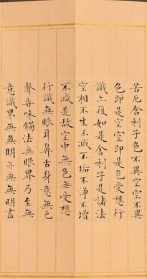 苦厄舍利子色不異空空不異
色即是空空即是色受想行
識亦復如是舍利子是諸法
空相不生不滅不垢不淨不增
不減是故空中無色無受想
行識無眼耳鼻舌身意無色
聲香味觸法無眼界乃至無
意識界無無明亦無無明盡